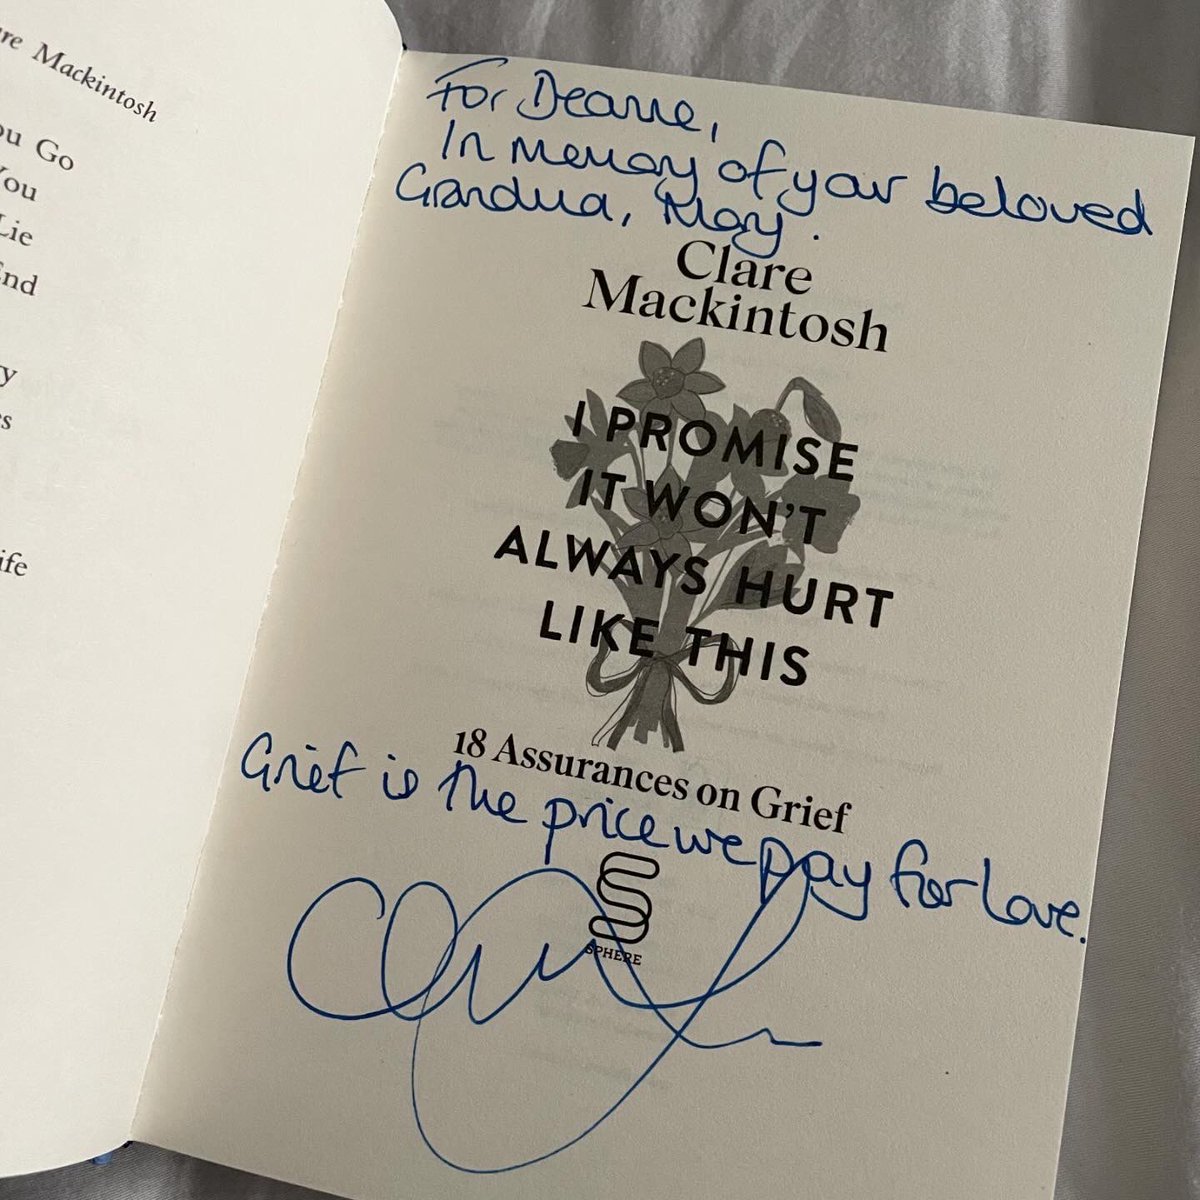 re Mackintosh
ou Go
You
Lie
End
y
s
ife
For Deanne,
In memory of your beloved
Grandma, May.
Clare
Mackintosh
I PROMISE
IT WON'T
ALWAYS HURT
LIKE THIS
18 Assurances on Grief
Grief is the price we pay for love.
SPHERE